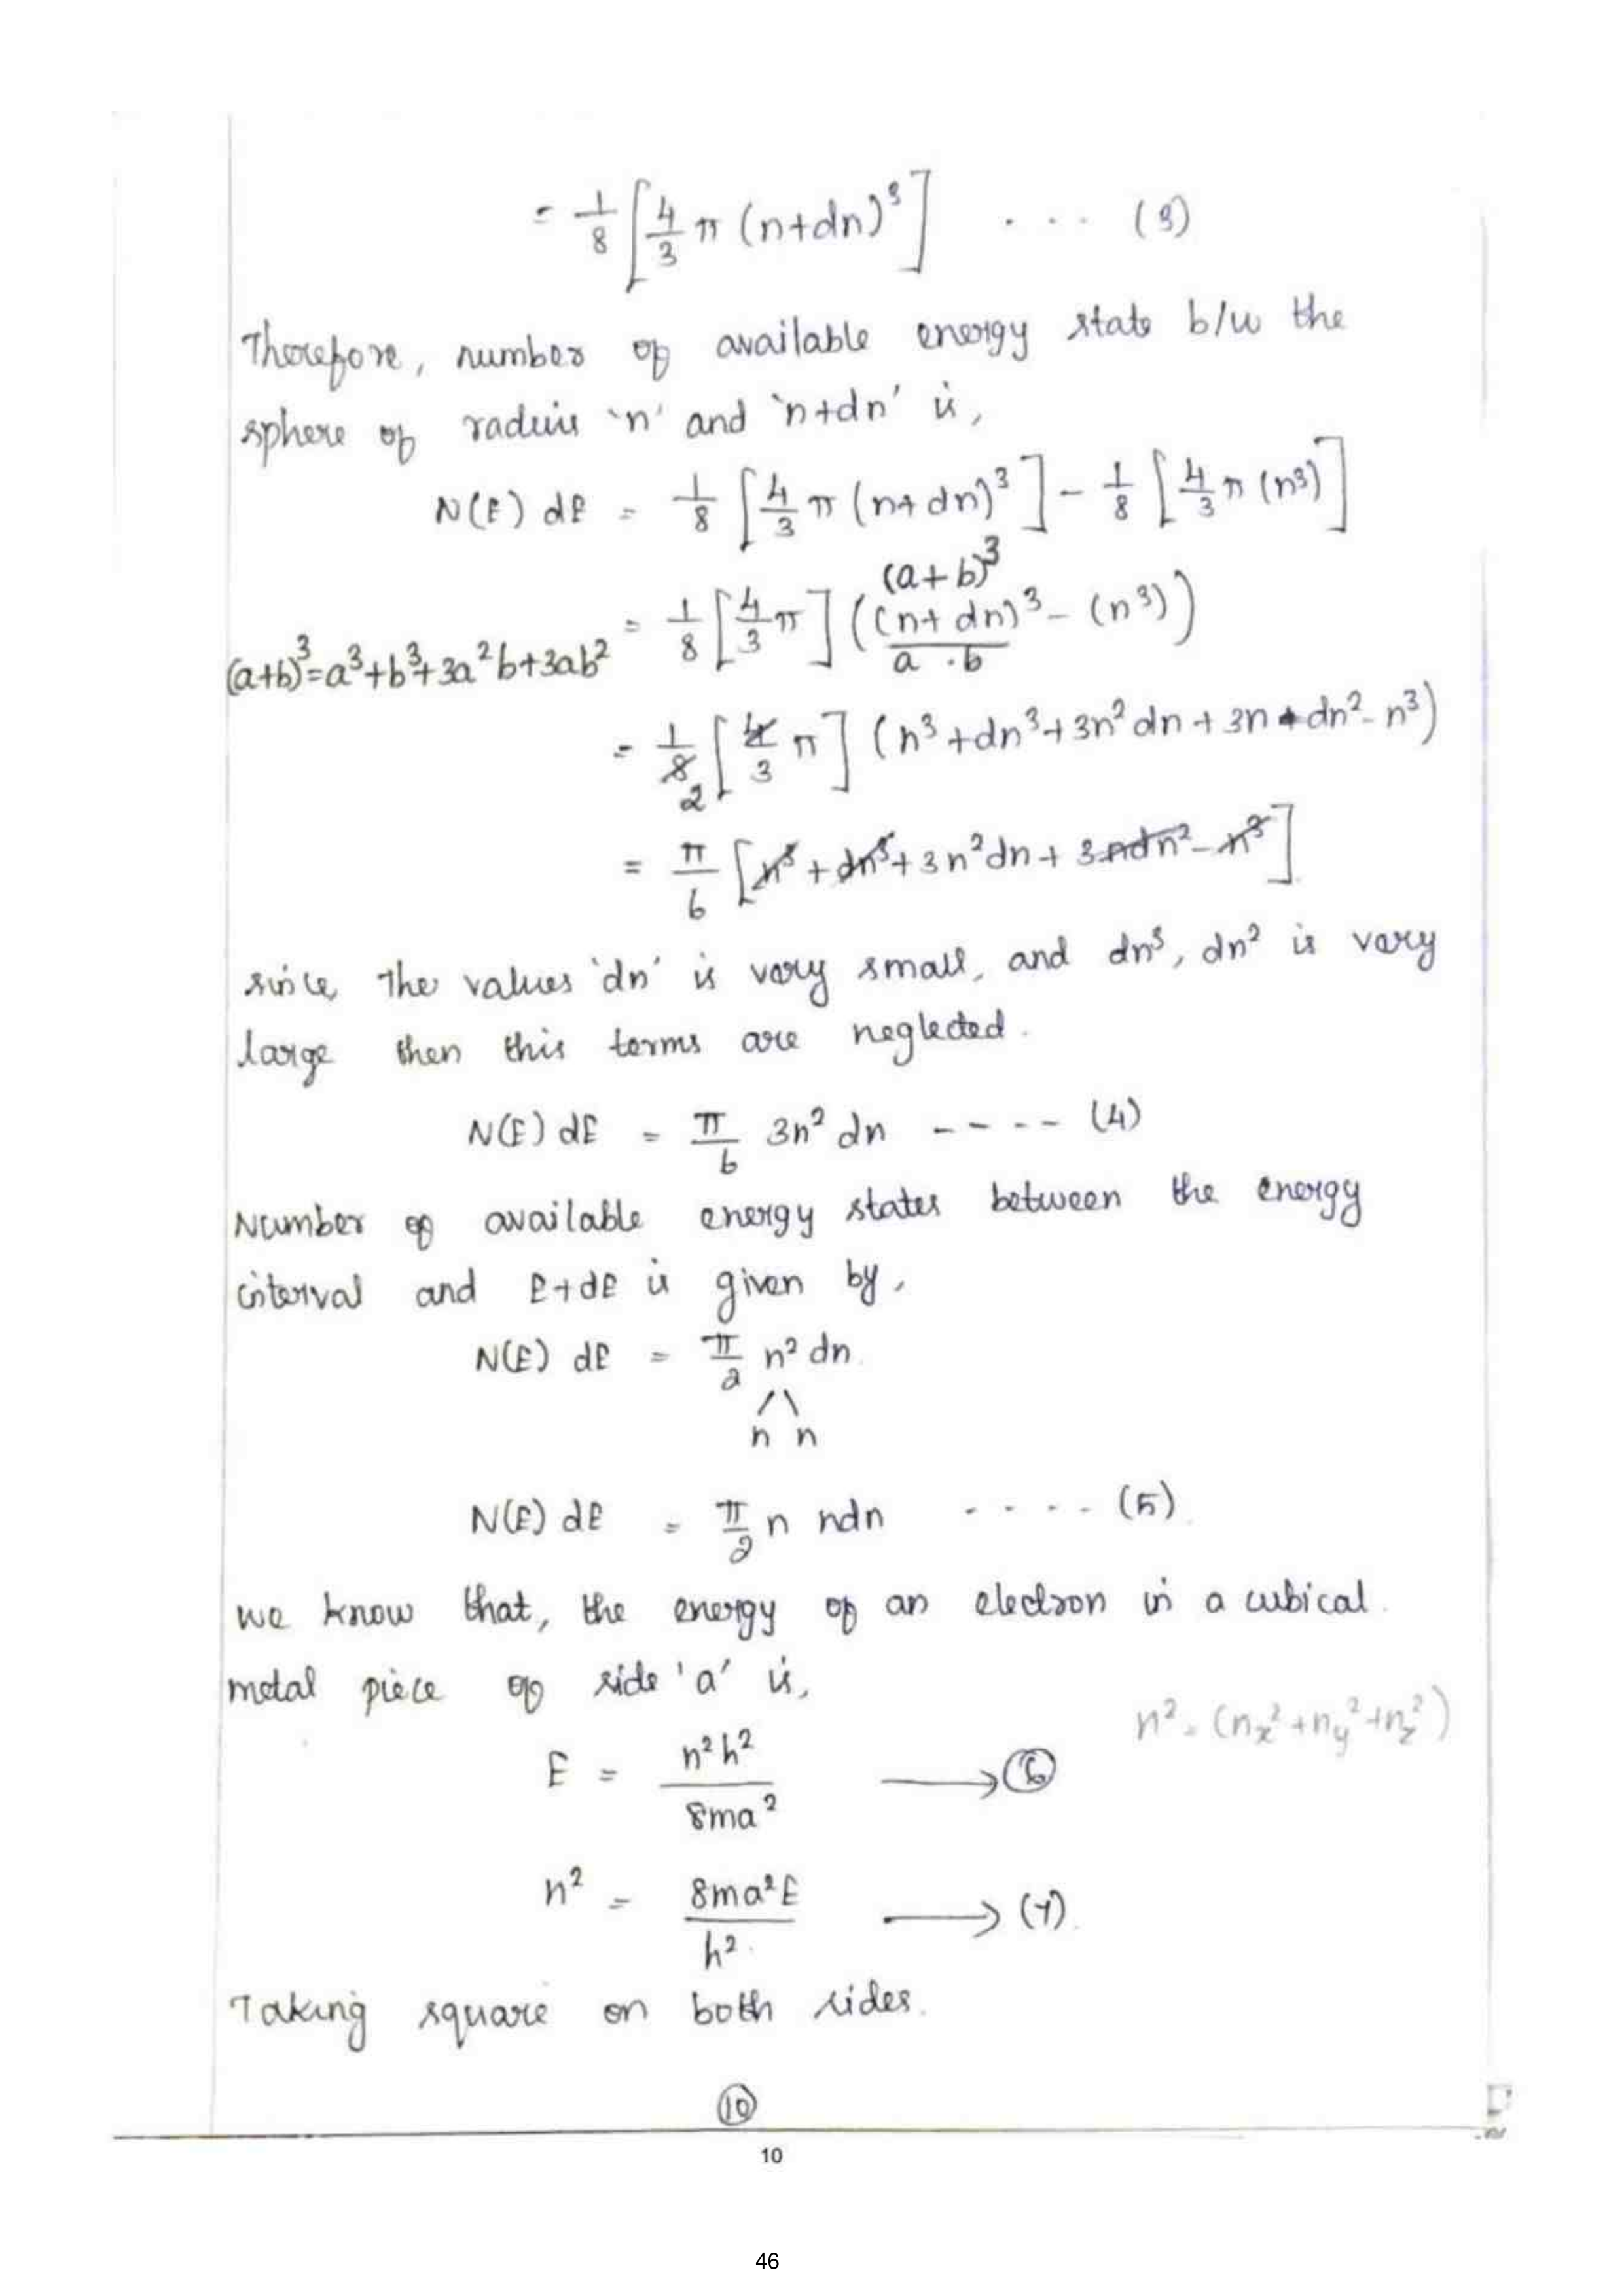 = 1/8 [4/3 π (n+dn)³] . . . (3)
Therefore, number of available energy state b/w the
sphere of radius 'n' and 'n+dn' is,
N(E) dE = 1/8 [4/3 π (n+dn)³] - 1/8 [4/3 π (n³)]
(a+b)³
= 1/8 [4/3 π] ((n+dn)³ - (n³))
a . b
(a+b)³=a³+b³+3a²b+3ab²
= 1/8 [4/3 π] (n³+dn³+3n²dn+3n dn²-n³)
2
= π/6 [n³+dn³+3n²dn+3ndn²-n³]
since, the values 'dn' is very small, and dn³, dn² is very
large then this terms are neglected.
N(E) dE = π/6 3n² dn ---- (4)
Number of available energy states between the energy
interval and E+dE is given by,
N(E) dE = π/2 n² dn.
n n
N(E) dE = π/2 n ndn . . . . (5)
we know that, the energy of an electron in a cubical
metal piece of side 'a' is,
n² = (nx²+ny²+nz²)
E = n²h²/8ma² → 6
n² = 8ma²E/h² → (7).
Taking square on both sides.
10
10
46